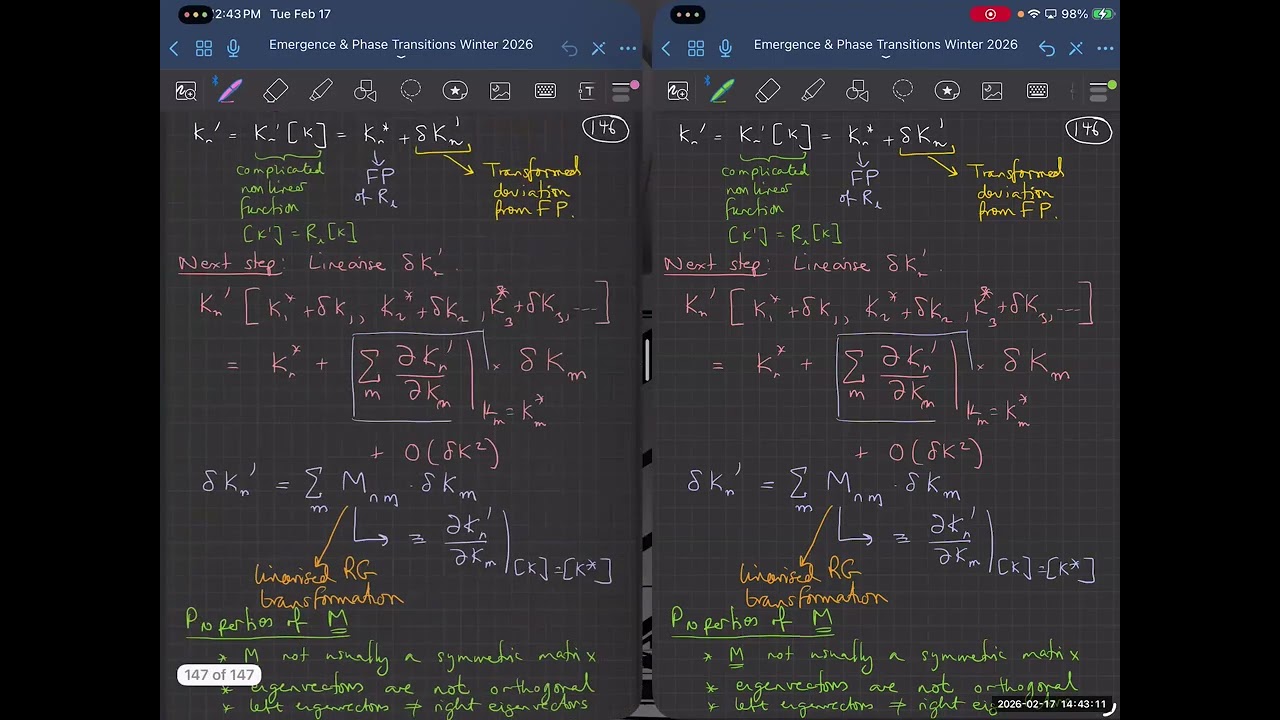 2:43 PM Tue Feb 17
98%
Emergence & Phase Transitions Winter 2026
Emergence & Phase Transitions Winter 2026
Kn' = Kn'[K] = Kn* + δKn'
146
complicated non linear function
[K'] = Rℓ[K]
FP of Rℓ
Transformed deviation from FP.
Next step: Linearise δKn'.
Kn' [K1* + δK1, K2* + δK2, K3* + δK3, ....]
= Kn* + Σm ∂Kn'/∂Km | Km = Km* × δKm
+ O(δK²)
δKn' = Σm Mnm · δKm
≡ ∂Kn'/∂Km | [K]=[K*]
linearised RG transformation
Properties of M
* M not usually a symmetric matrix
* eigenvectors are not orthogonal
* left eigenvectors ≠ right eigenvectors
147 of 147
Kn' = Kn'[K] = Kn* + δKn'
146
complicated non linear function
[K'] = Rℓ[K]
FP of Rℓ
Transformed deviation from FP.
Next step: Linearise δKn'.
Kn' [K1* + δK1, K2* + δK2, K3* + δK3, ....]
= Kn* + Σm ∂Kn'/∂Km | Km = Km* × δKm
+ O(δK²)
δKn' = Σm Mnm · δKm
≡ ∂Kn'/∂Km | [K]=[K*]
linearised RG transformation
Properties of M
* M not usually a symmetric matrix
* eigenvectors are not orthogonal
* left eigenvectors ≠ right
2026-02-17 14:43:11